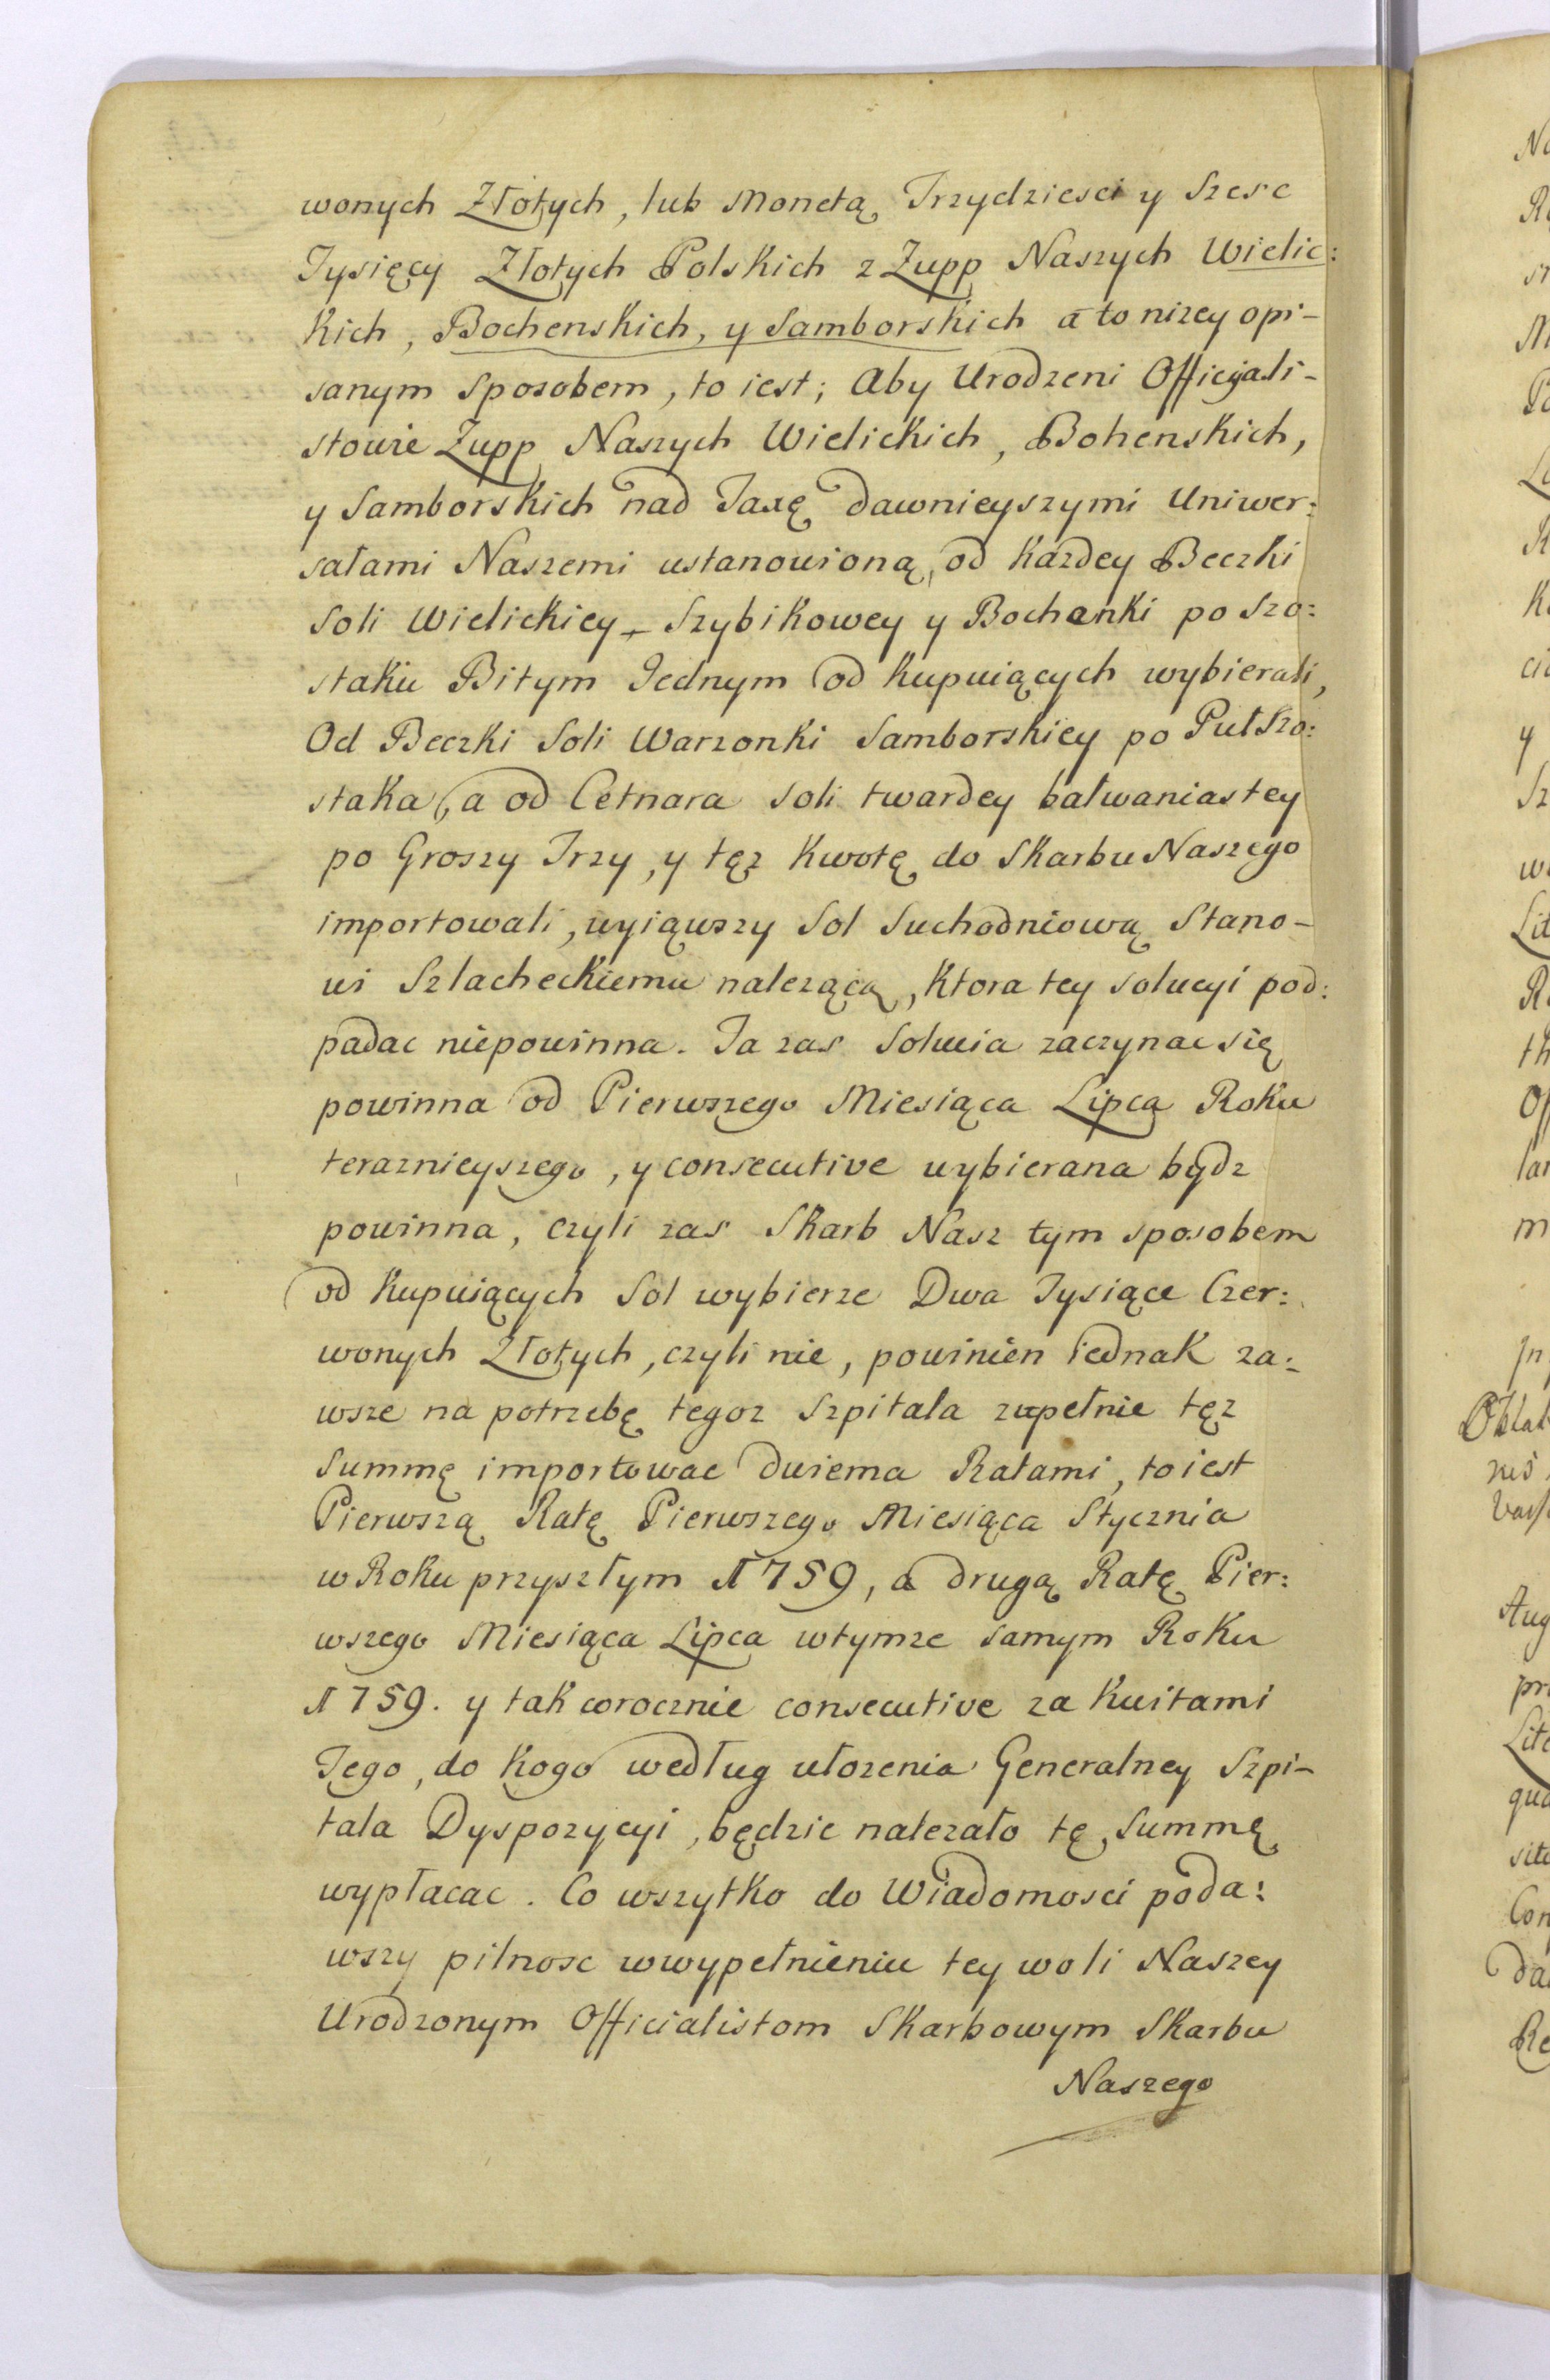 wonych Złotych, lub Monetą Trzydziesci y Szesc
Tysięcy Złotych Polskich z Zupp Naszych Wielic:
kich, Bochenskich, y Samborskich a to nizey opi-
sanym sposobem, to iest; Aby Urodzeni Officyali-
stowie Zupp Naszych Wielickich, Bohenskich,
y Samborskich nad Taxę dawnieyszymi Uniwer:
sałami Naszemi ustanowioną, od kazdey Beczki
Soli Wielickiey Szybikowey y Bochenki po Szo:
staku Bitym Jednym od kupuiących wybierali,
Od Beczki Soli Warzonki Samborskiey po Puł Szo:
staka, a od Cetnara soli twardey bałwaniastey
po Groszy Trzy, y tęz kwotę do Skarbu Naszego
importowali, wyiąwszy Sol Suchodniową Stano-
wi Szlacheckiemu nalezącą, ktora tey solucyi pod:
padac niepowinna. Ta zas Solucia zaczynac się
powinna od Pierwszego Miesiąca Lipca Roku
teraznieyszego, y consecutive wybierana bydz
powinna, czyli zas Skarb Nasz tym sposobem
od kupuiących Sol wybierze Dwa Tysiące Czer:
wonych Złotych, czyli nie, powinien iednak za:
wsze na potrzebę tegoz Szpitala zupełnie tęz
Summę importowac dwiema Ratami, to iest
Pierwszą Ratę Pierwszego Miesiąca Stycznia
w Roku przyszłym 1759, a drugą Ratę Pier:
wszego Miesiąca Lipca wtymze samym Roku
1759. y tak corocznie consecutive za kwitami
Tego, do kogo według ułozenia Generalney Szpi-
tala Dyspozycyi, będzie nalezało tę Summę
wypłacac. Co wszytko do Wiadomosci poda:
wszy pilnosc wwypełnieniu tey woli Naszey
Urodzonym Officialistom Skarbowym Skarbu
Naszego